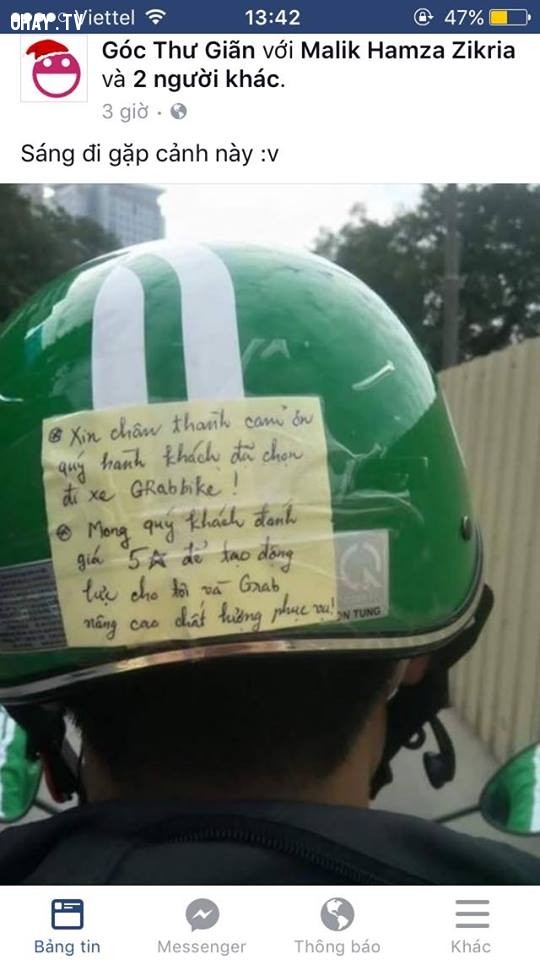 Viettel 13:42 47%
OHAY.TV
Góc Thư Giãn với Malik Hamza Zikria
và 2 người khác.
3 giờ ·
Sáng đi gặp cảnh này :v
Xin chân thành cảm ơn
quý hành khách đã chọn
đi xe GRabbike !
Mong quý khách đánh
giá 5☆ để tạo động
lực cho tôi và Grab
nâng cao chất lượng phục vụ!
ON TUNG
Bảng tin Messenger Thông báo Khác